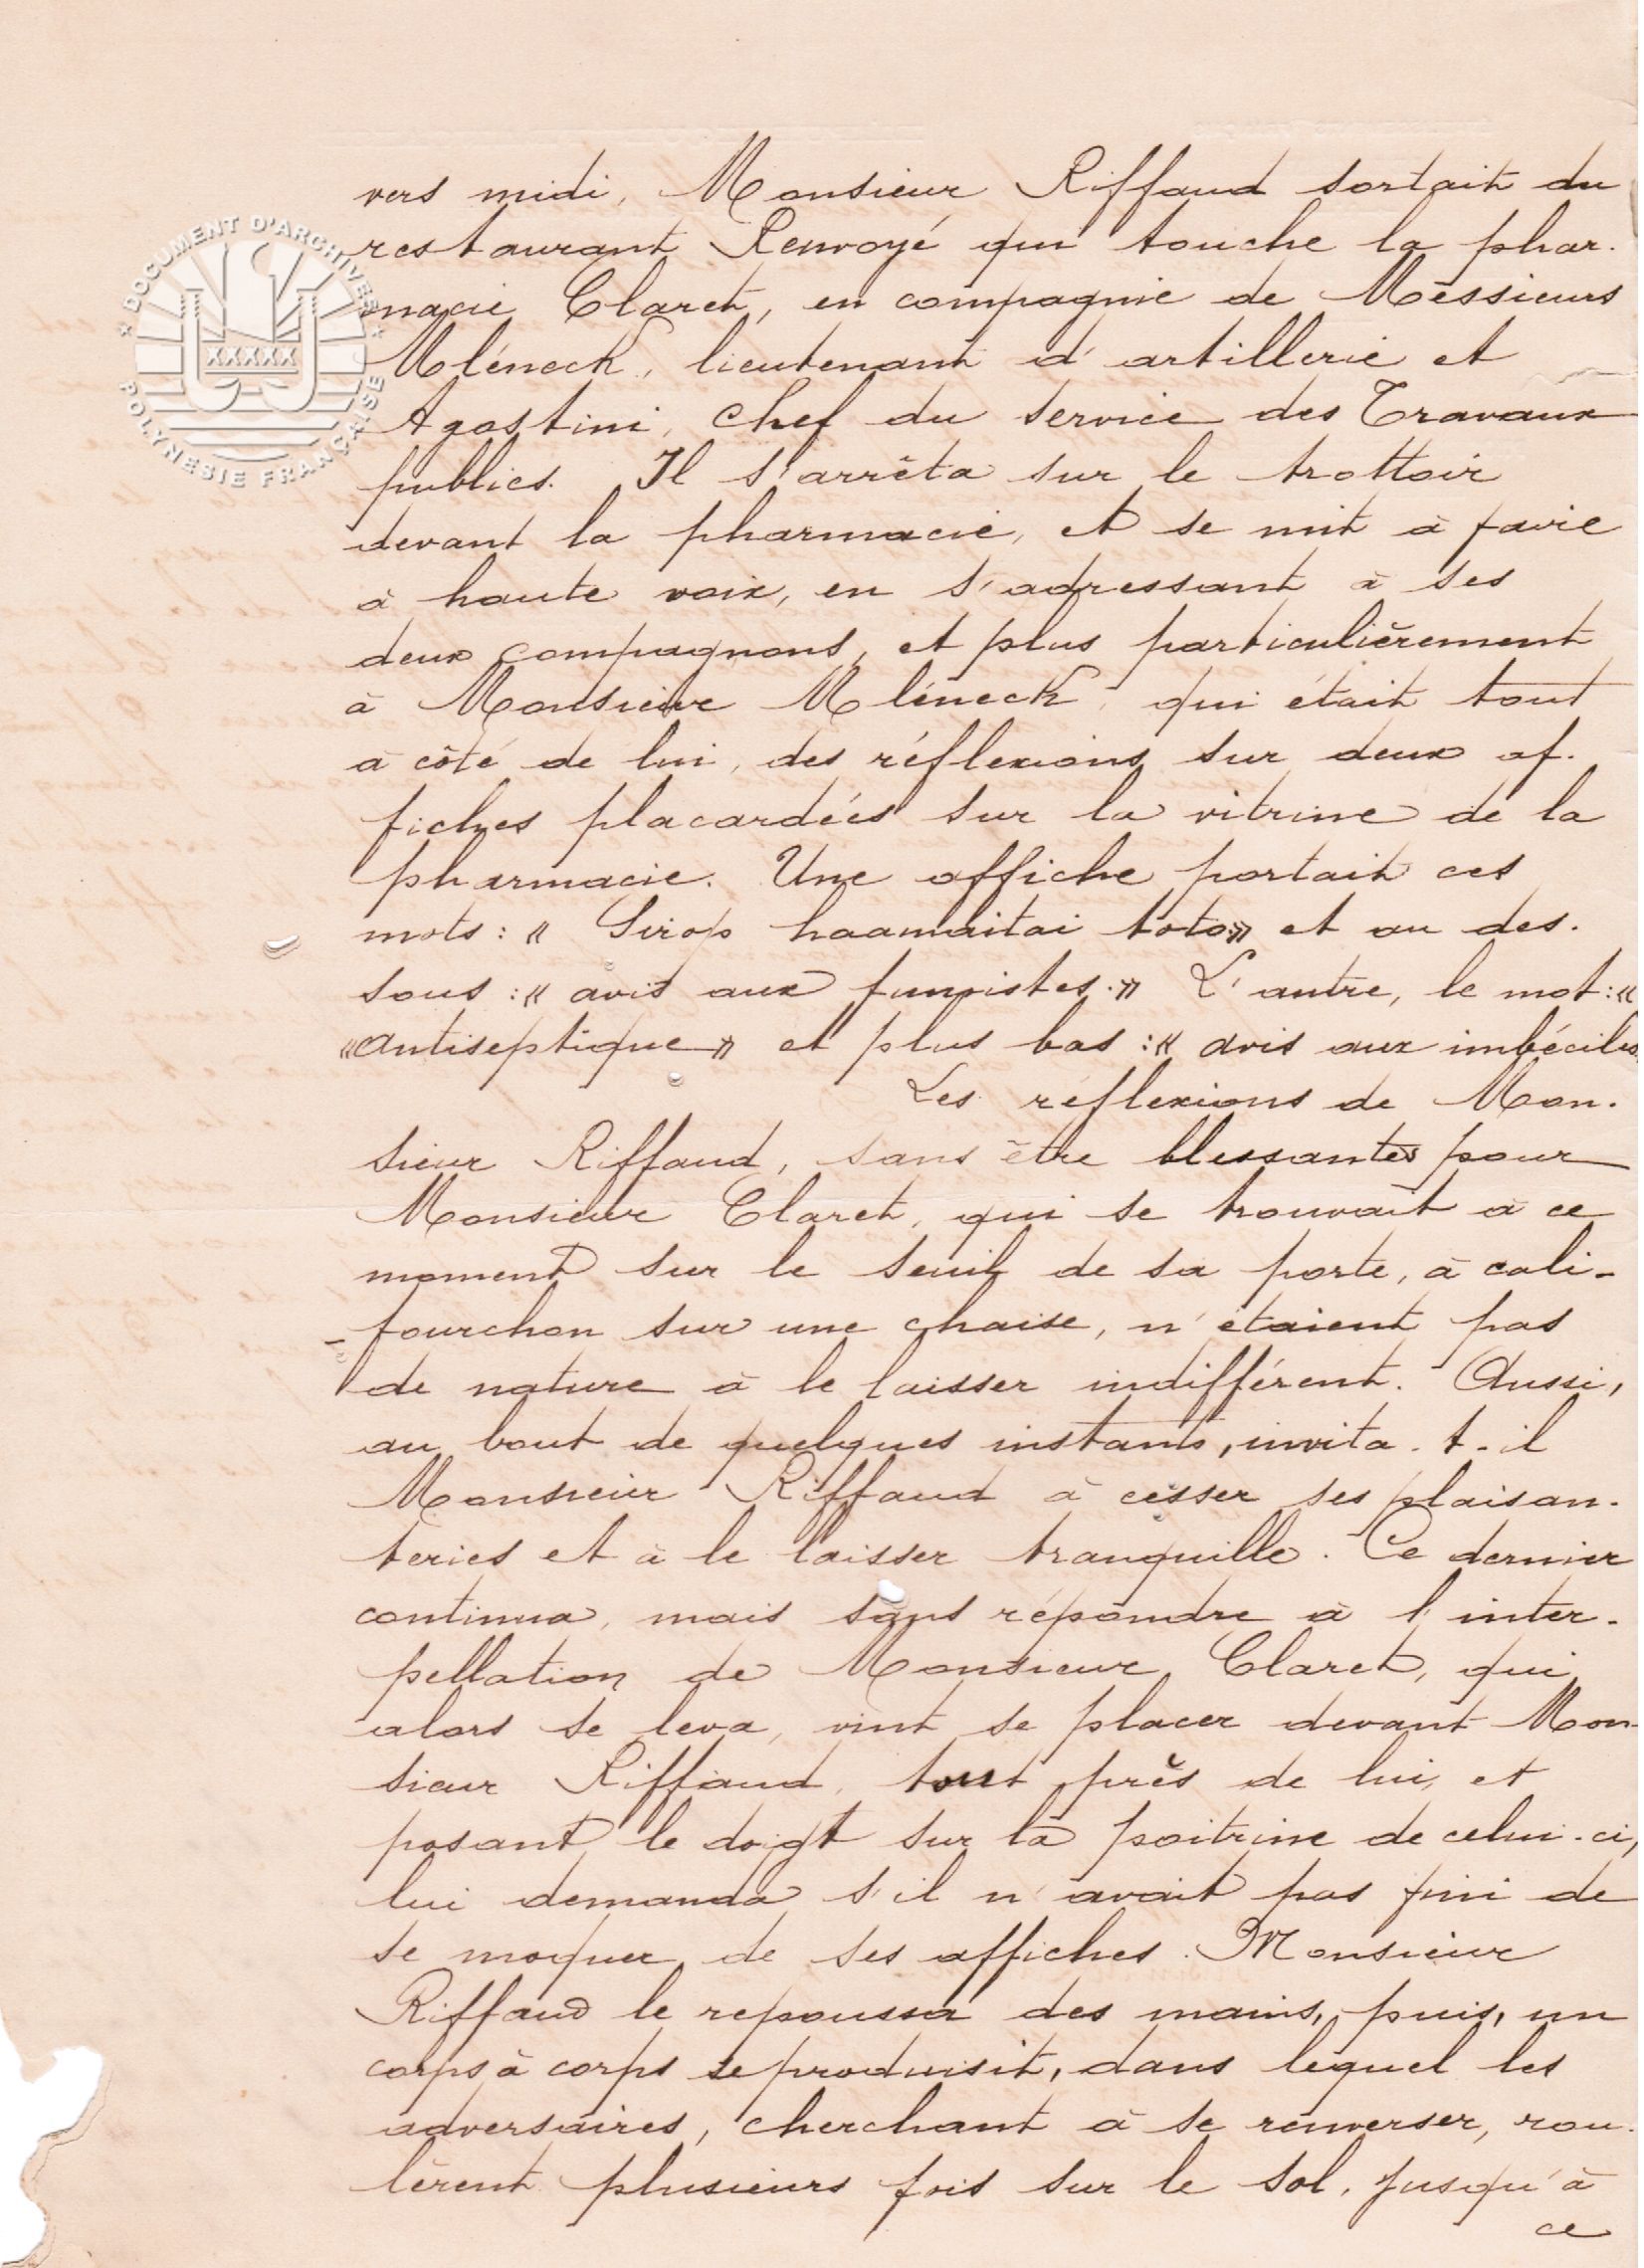 vers midi, Monsieur Riffaud sortait du
restaurant Renvoyé qui touche la phar.
macie Claret, en compagnie de Messieurs
Mléneck, lieutenant d'artillerie et
Agostini, Chef du service des Travaux
publics. Il s'arrêta sur le trottoir
devant la pharmacie, et se mit à faire
à haute voix, en s'adressant à ses
deux compagnons, et plus particulièrement
à Monsieur Mléneck, qui était tout
à côté de lui, des réflexions sur deux af.
fiches placardées sur la vitrine de la
pharmacie. Une affiche portait ces
mots : « Sirop haamaitai toto » et au des.
sous : « avis aux fumistes. » L'autre, le mot : «
« Antiseptique » et plus bas : « avis aux imbéciles.
Les réflexions de Mon.
sieur Riffaud, sans être blessantes pour
Monsieur Claret, qui se trouvait à ce
moment sur le seuil de sa porte, à cali-
fourchon sur une chaise, n'étaient pas
de nature à le laisser indifférent. Aussi,
au bout de quelques instants, invita-t-il
Monsieur Riffaud à cesser ses plaisan.
teries et à le laisser tranquille. Ce dernier
continua, mais sans répondre à l'inter-
pellation de Monsieur Claret, qui
alors se leva, vint se placer devant Mon-
sieur Riffaud, tout près de lui, et
posant le doigt sur la poitrine de celui-ci,
lui demanda s'il n'avait pas fini de
se moquer de ses affiches. Monsieur
Riffaud le repoussa des mains, puis, un
corps à corps se produisit, dans lequel les
adversaires, cherchant à se renverser, rou.
lèrent plusieurs fois sur le sol, jusqu'à
ce
DOCUMENT D'ARCHIVES
XXXXX
POLYNESIE FRANÇAISE